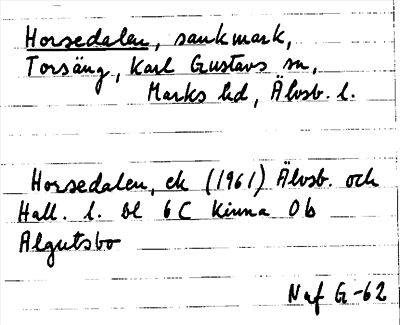 Horsedalen, sankmark,
Torsäng, Karl Gustavs sn,
Marks hd, Älvsb. l.
Horsedalen, ek (1961) Älvsb. och
Hall. l. bl 6C Kinna 0b
Algutsbo
Naf G-62